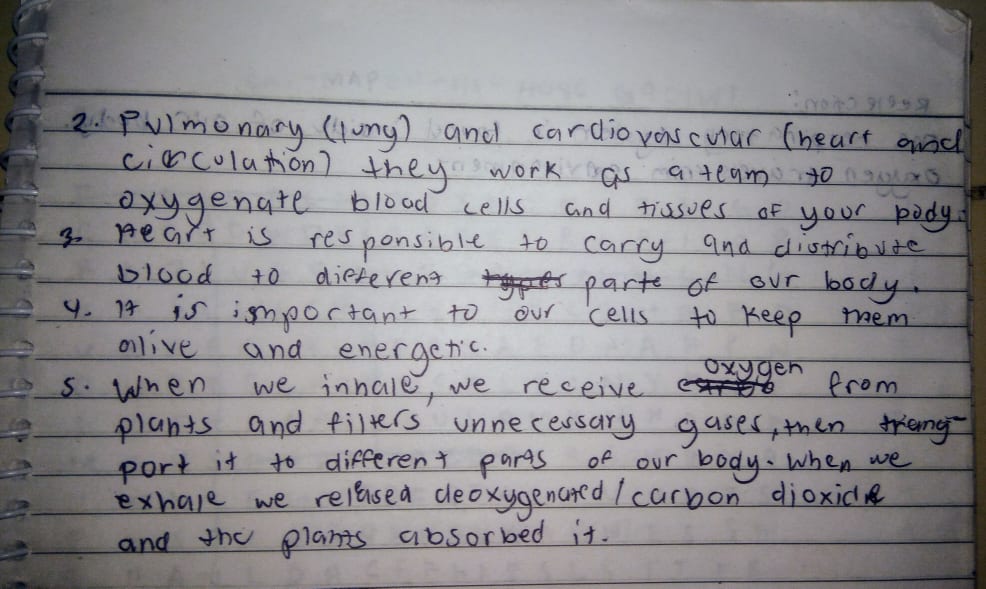 2. Pulmonary (lung) and cardiovascular (heart and
circulation) they work as a team to
oxygenate blood cells and tissues of your body.
3. Heart is responsible to carry and distribute
blood to different parts of our body.
4. It is important to our cells to keep them
alive and energetic.
5. When we inhale, we receive oxygen from
plants and filters unnecessary gases, then trans-
port it to different parts of our body. When we
exhale we released deoxygenated / carbon dioxide
and the plants absorbed it.